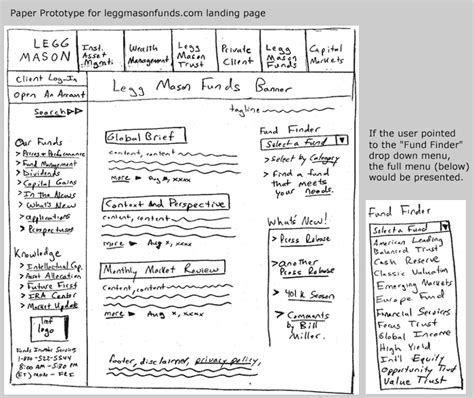 Paper Prototype for leggmasonfunds.com landing page
LEGG MASON
Inst. Asset Mgmt
Wealth Management
Legg Mason Trust
Private Client
Legg Mason Funds
Capital Markets
Client Log-In
Open An Account
Legg Mason Funds Banner
tagline
Search >>
Our Funds
> Prices + Performance
> Fund Management
> Dividends
> Capital Gains
> In the News
> What's New
> applications
> Prospectuses
Knowledge
> Intellectual Cap.
> Asset Allocation
> Future First
> IRA Center
> Market Update
lmf logo
Funds Investor Services
1-800-522-5544
8:00 AM - 5:30 PM
(ET) MON - FRI
Global Brief
content, content
more > Aug x, xxxx
Context and Perspective
content, content
more > Aug x, xxxx
Monthly Market Review
Content, content
more > Aug x, xxxx
footer, disclaimer, privacy policy,
Fund Finder
Select a Fund
> Select by Category
> Find a fund
that meets
your needs.
What's New!
> Press Release
> another
Press Release
> 401k Season
> Comments
by Bill
Miller.
If the user pointed
to the "Fund Finder"
drop down menu,
the full menu (below)
would be presented.
Fund Finder
Select a Fund
American Leading
Balanced Trust
Cash Reserve
Classic Valuation
Emerging Markets
Europe Fund
Financial Services
Focus Trust
Global Income
High Yield
Int'l Equity
Opportunity Trust
Value Trust